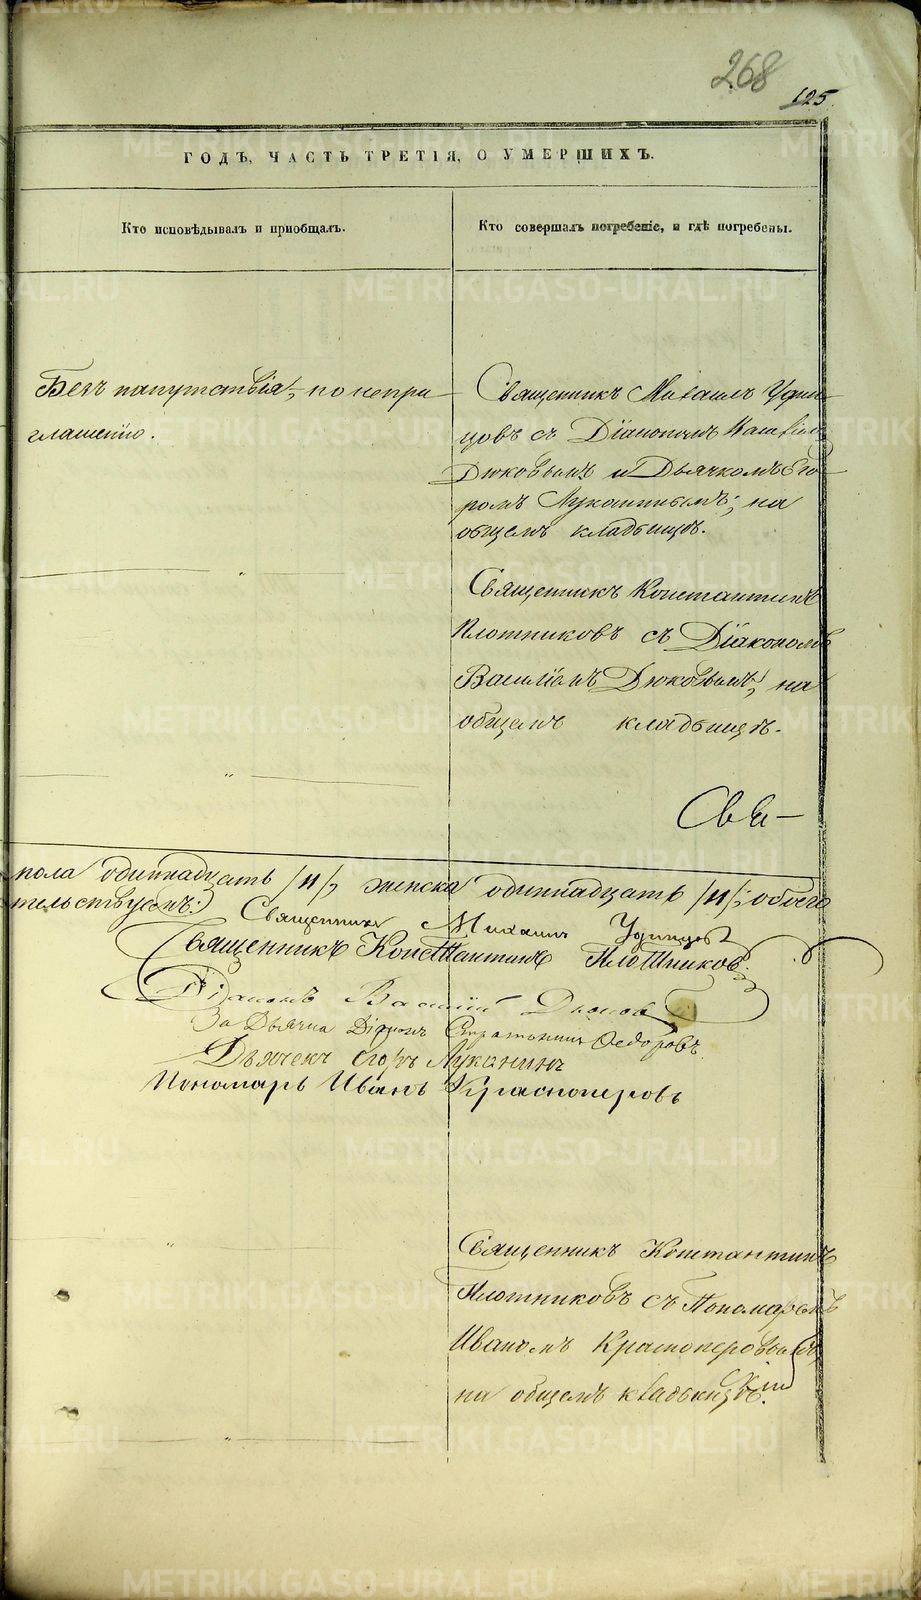 268
125.
ГОДЪ, ЧАСТЬ ТРЕТІЯ, О УМЕРШИХЪ.
Кто исповѣдывалъ и пріобщалъ.
Кто совершалъ погребеніе, и гдѣ погребены.
Безъ напутствія, по непри-
глашенію.
Священникъ Михаилъ Удин-
цовъ съ Діакономъ
Дюковымъ и Дьячкомъ Его-
ромъ Лукантнымъ; на
общемъ кладбищѣ.
Священникъ Константинъ
Плотниковъ съ Діакономъ
Василіемъ Дюковымъ; на
общемъ кладбищѣ.
Свя-
пола одиннадцать /11/, женска одиннадцать /11/; обоего
тельствуемъ:)
Священникъ Михаилъ Удинцовъ
Священникъ Константинъ Плотниковъ.
Діаконъ Василій Дюковъ
За Дьячка Діаконъ Стратоникъ Федоровъ
Дьячекъ Егоръ Луканинъ
Пономарь Иванъ Красноперовъ
Священникъ Константинъ
Плотниковъ съ Пономаремъ
Иваномъ Красноперовымъ,
на общемъ кладбищѣ.
METRIKI.GASO-URAL.RU